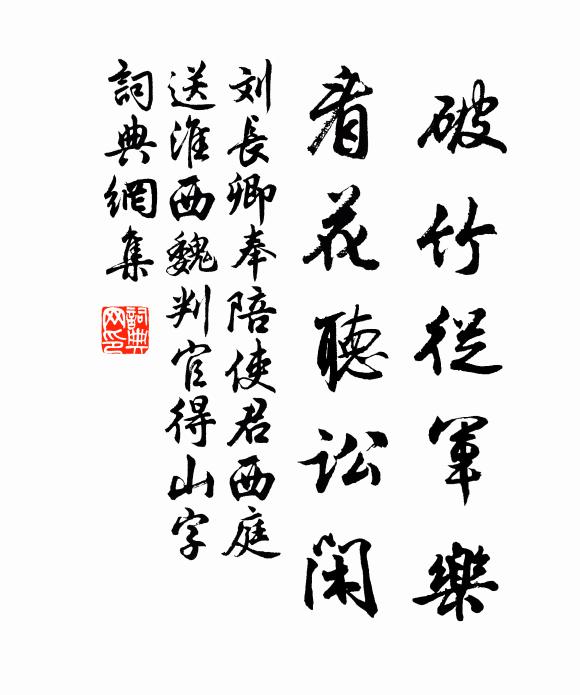 破竹從軍樂
看花聽訟閑
刘長卿奉陪使君西庭
送淮西魏判官得山字
詞典網集
詞典网印